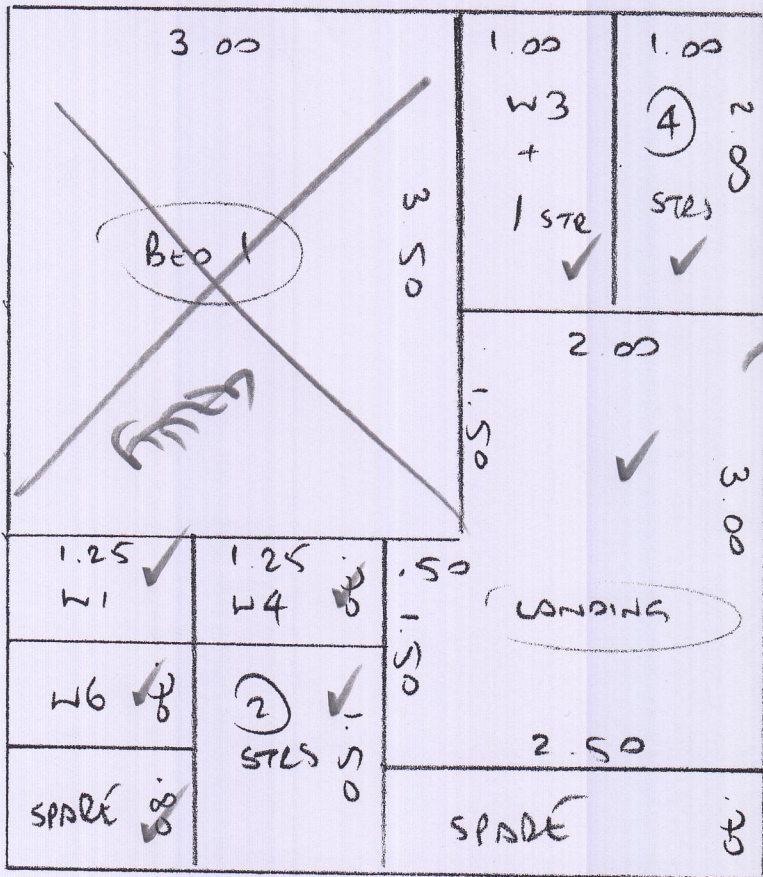 3.00
BED 1
3.50
1.00
W3
+
1 STR
1.00
4
STRS
2.00
2.00
1.50
3.00
LANDING
1.25
W1
1.25
W4
.50
1.50
W6
2
STRS
1.50
2.50
SPARE
SPARE
.70